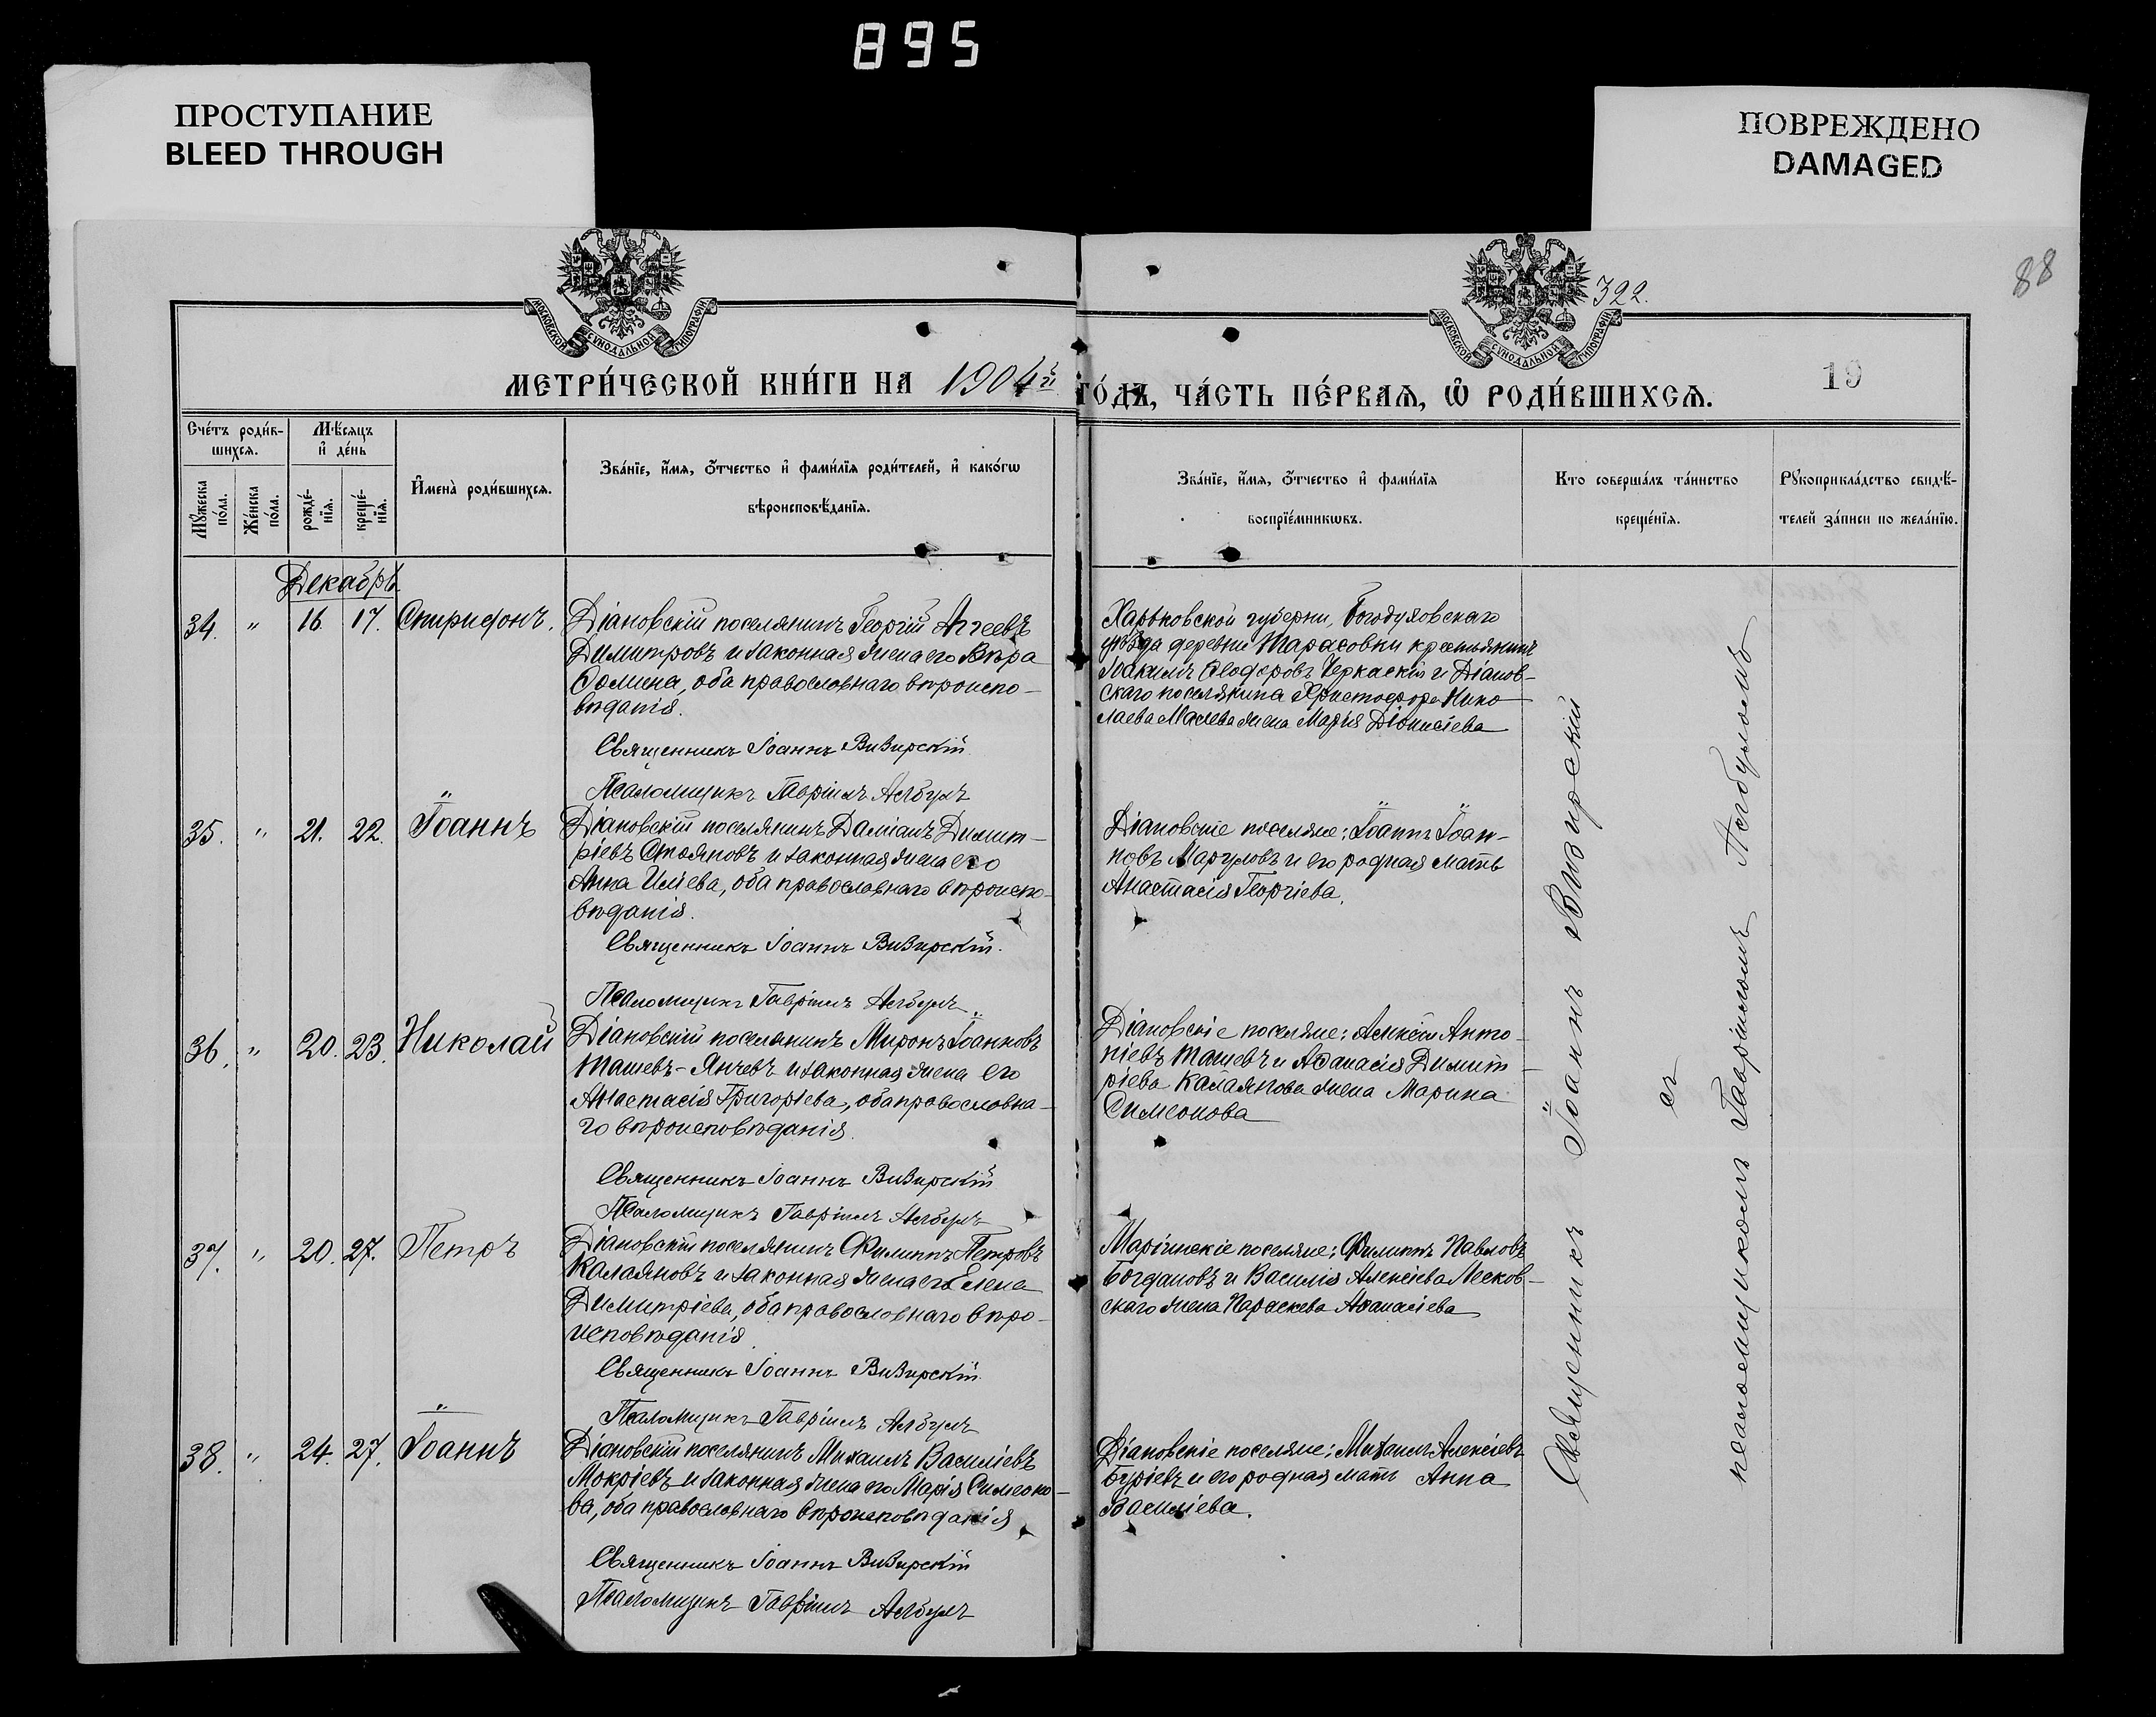 895
ПРОСТУПАНИЕ
BLEED THROUGH
ПОВРЕЖДЕНО
DAMAGED
88
322.
МОСКОВСКОЙ СѴНОДАЛЬНОЙ ТИПОГРАФІИ
МОСКОВСКОЙ СѴНОДАЛЬНОЙ ТИПОГРАФІИ
19
МЕТРИ́ЧЕСКОЙ КНИ́ГИ НА 1904й ГО́ДЪ, ЧА́СТЬ ПЕ́РВАѦ, Ѡ РОДИ́ВШИХСѦ.
Сче́тъ роди́в-
шихсѧ.
Мꙋ́жеска по́ла.
Же́нска по́ла.
Мѣ́сяцъ
и҆ де́нь
рожде́-нїѧ.
креще́-нїѧ.
И҆мена̀ роди́вшихсѧ.
Зва́нїе, и҆́мѧ, ѻ҆́тчество и҆ фами́лїѧ роди́телей, и҆ како́гѡ
вѣроисповѣ́данїѧ.
Зва́нїе, и҆́мѧ, ѻ҆́тчество и҆ фами́лїѧ
воспрїе́мникѡвъ.
Кто соверша́лъ та́инство
креще́нїѧ.
Рꙋкоприкла́дство свидѣ́-
телей за́писи по жела́нїю.
Декабрь
34. " 16. 17. Спиридонъ.
Діановскій поселянинъ Георгій Агеевъ
Димитровъ и законная жена его Вѣра
Ѳомина, оба православнаго вѣроиспо-
вѣданія.
Священникъ Іоаннъ Визирскій
Псаломщикъ Гавріилъ Агбулъ
Харьковской губерни, Богодуховскаго
уѣзда деревни Тарасовки крестьянинъ
Іоакимъ Ѳеодоровъ Черкаскій и Діанов-
скаго поселянина Христофора Нико
лаева жена Марія Діонисіева
35. " 21. 22. Іоаннъ
Діановскій поселянинъ Даміанъ Димит-
ріевъ Стояновъ и законная жена его
Анна Иліева, оба православнаго вѣроиспо-
вѣданія.
Священникъ Іоаннъ Визирскій.
Псаломщикъ Гавріилъ Агбулъ
Діановскіе поселяне: Іоаннъ Іоан-
новъ Маруловъ и его родная мать
Анастасія Георгіева.
36. " 20. 23. Николай
Діановскій поселянинъ Миронъ Іоанновъ
Ташевъ-Янчевъ и законная жена его
Анастасія Григоріева, оба православна-
го вѣроисповѣданія.
Священникъ Іоаннъ Визирскій
Псаломщикъ Гавріилъ Агбулъ
Діановскіе поселяне: Алексѣй Анто-
ніевъ Ташевъ и Аѳанасія Димит-
ріева Калаянова жена Марина
Симеонова
37. " 20. 27. Петръ
Діановскій поселянинъ Филиппъ Петровъ
Калаяновъ и законная жена его Елена
Димитріева, оба православнаго вѣро-
исповѣданія
Священникъ Іоаннъ Визирскій.
Псаломщикъ Гавріилъ Агбулъ
Маріинскіе поселяне: Филиппъ Павловъ
Богдановъ и Василія Алексіева Лесков-
скаго жена Параскева Аѳанасіева
38. " 24. 27. Іоаннъ
Діановскій поселянинъ Михаилъ Василіевъ
Мокріевъ и законная жена его Марія Симеоно-
ва, оба православнаго вѣроисповѣданія
Священникъ Іоаннъ Визирскій
Псаломщикъ Гавріилъ Агбулъ
Діановскіе поселяне: Михаилъ Алексіевъ
Буріевъ и его родная мать Анна
Василіева.
Священникъ Іоаннъ Визирскій
съ
псаломщикомъ Гавріиломъ Агбуломъ